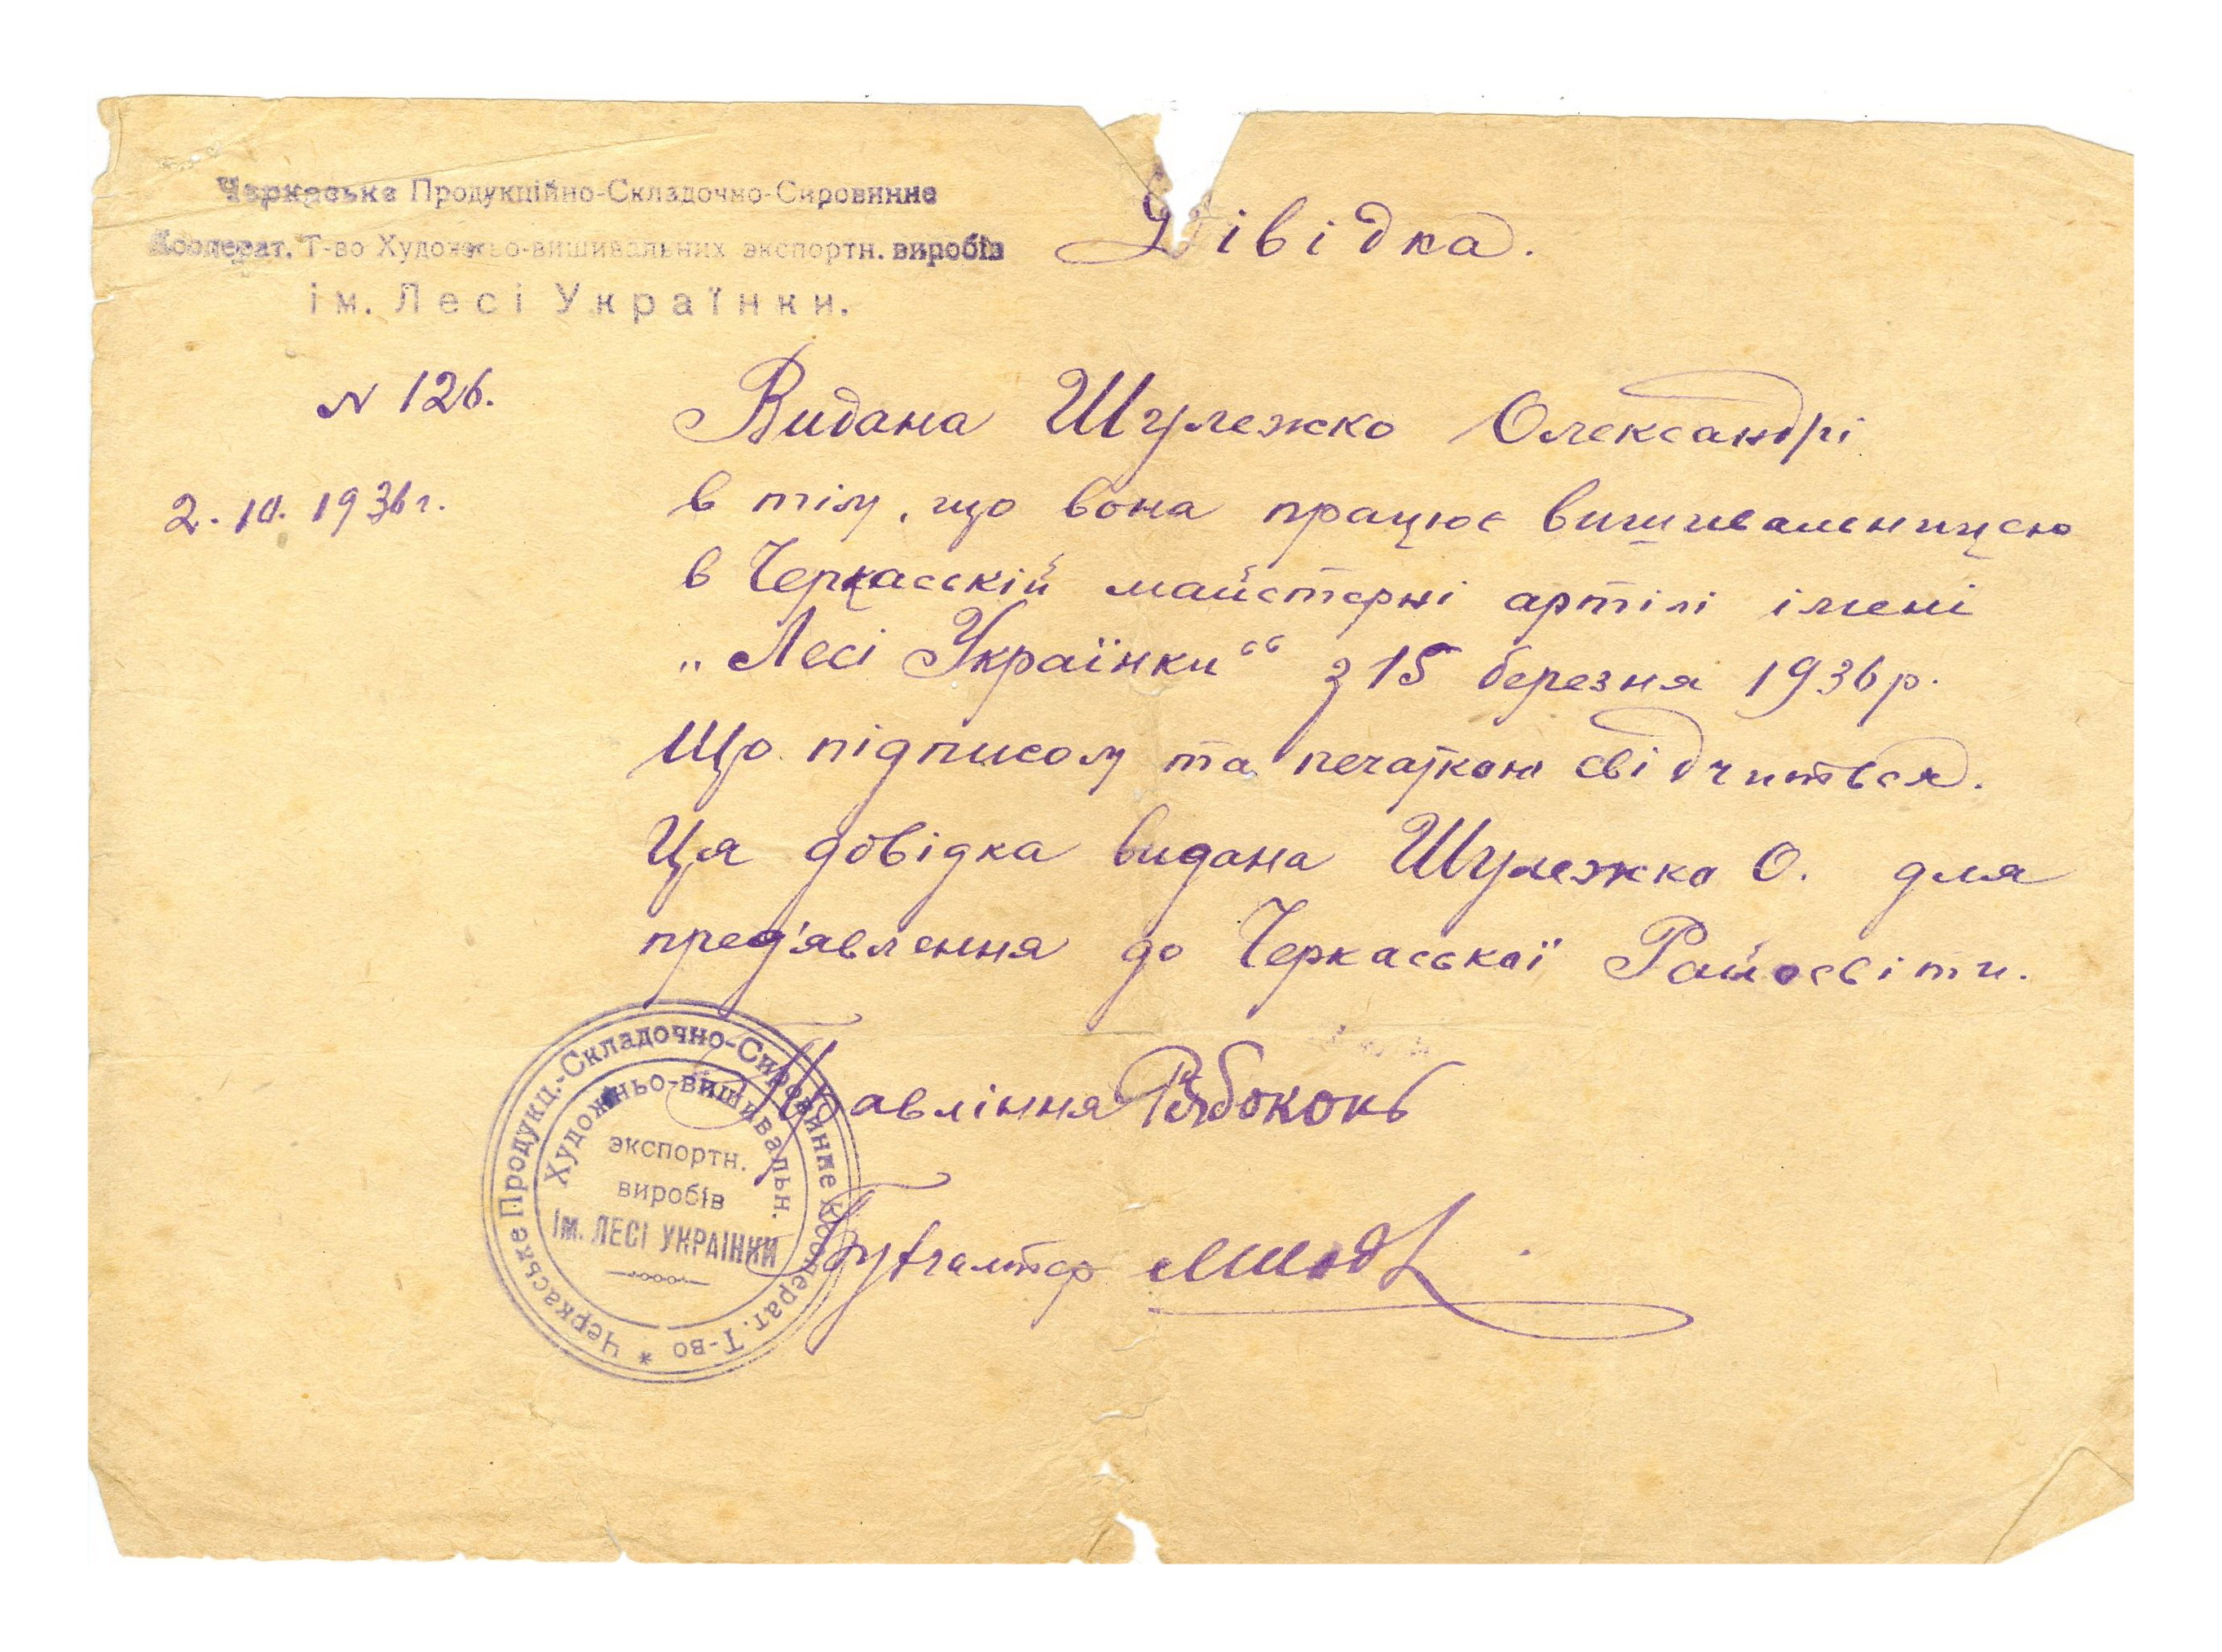 Черкаське Продукційно-Складочно-Сировинне
Кооперат. Т-во Художньо-вишивальних экспортн. виробів
ім. Лесі Українки.
Довідка.
N 126.
2. 10. 1936 г.
Видана Шулежко Олександрі
в тім, що вона працює вишивальницею
в Черкасскій майстерні артілі імені
„Лесі Українки“ з 15 березня 1936 р.
Що підписом та печаткою свідчиться.
Ця довідка видана Шулежко О. для
пред'явлення до Черкаської Райосвіти.
Правління Рябоконь
Бухгалтер
Черкаське Продукц.-Складочно-Сировинне Кооперат. Т-во *
Художньо-вишивальн.
экспортн.
виробів
ім. ЛЕСІ УКРАІНКИ